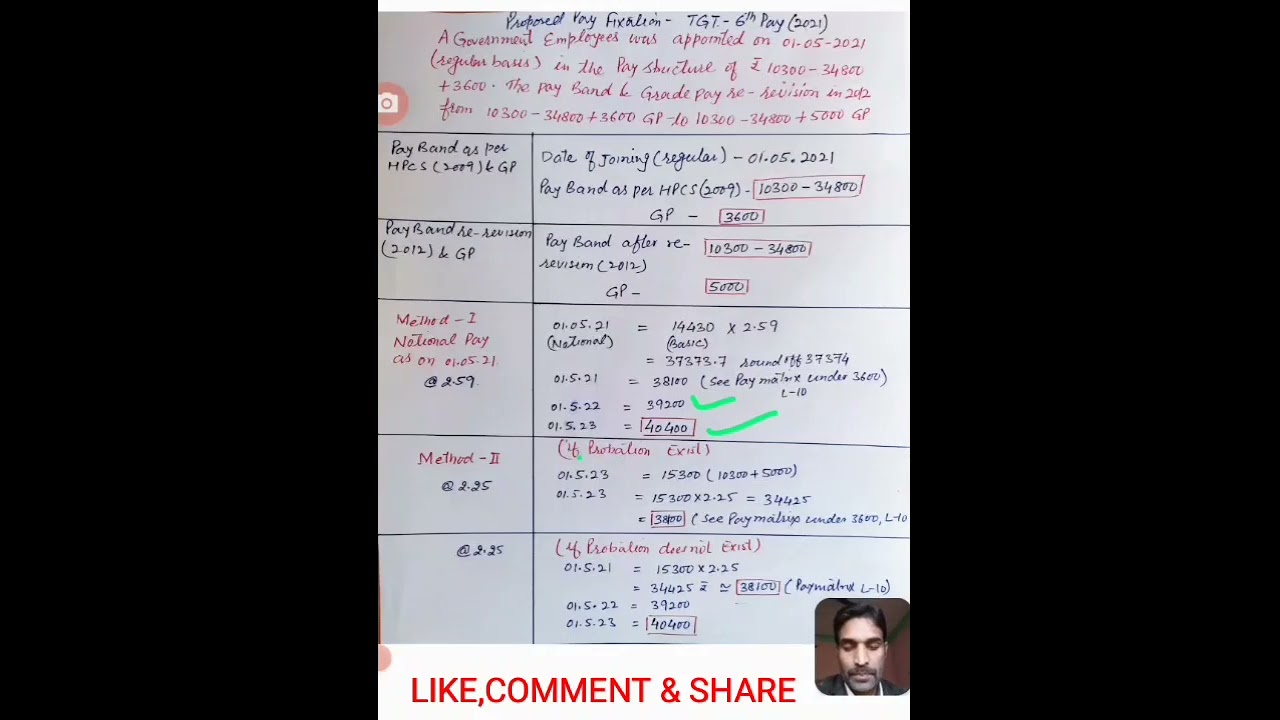 Proposed Pay Fixation - TGT - 6th Pay (2021)
A Government Employees was appointed on 01-05-2021
(regular basis) in the Pay Structure of ₹ 10300-34800
+3600. The pay Band & Grade pay re-revision in 2012
from 10300-34800+3600 GP to 10300-34800+5000 GP
Pay Band as per
HPCS (2009) & GP
Date of Joining (regular) - 01.05.2021
Pay Band as per HPCS (2009) - 10300-34800
GP - 3600
Pay Band re-revision
(2012) & GP
Pay Band after re- 10300-34800
revision (2012)
GP - 5000
Method-I
Notional Pay
as on 01.05.21
@ 2.59.
01.05.21 = 14430 x 2.59
(Notional) (Basic)
= 37373.7 round off 37374
01.5.21 = 38100 (See Pay matrix under 3600)
L-10
01.5.22 = 39200
01.5.23 = 40400
Method-II
@ 2.25
(if Probation Exist)
01.5.23 = 15300 (10300+5000)
01.5.23 = 15300x2.25 = 34425
= 38100 (See Pay matrix under 3600, L-10
@ 2.25
(if Probation does not Exist)
01.5.21 = 15300 x 2.25
= 34425 ≃ 38100 (Pay matrix L-10)
01.5.22 = 39200
01.5.23 = 40400
LIKE,COMMENT & SHARE